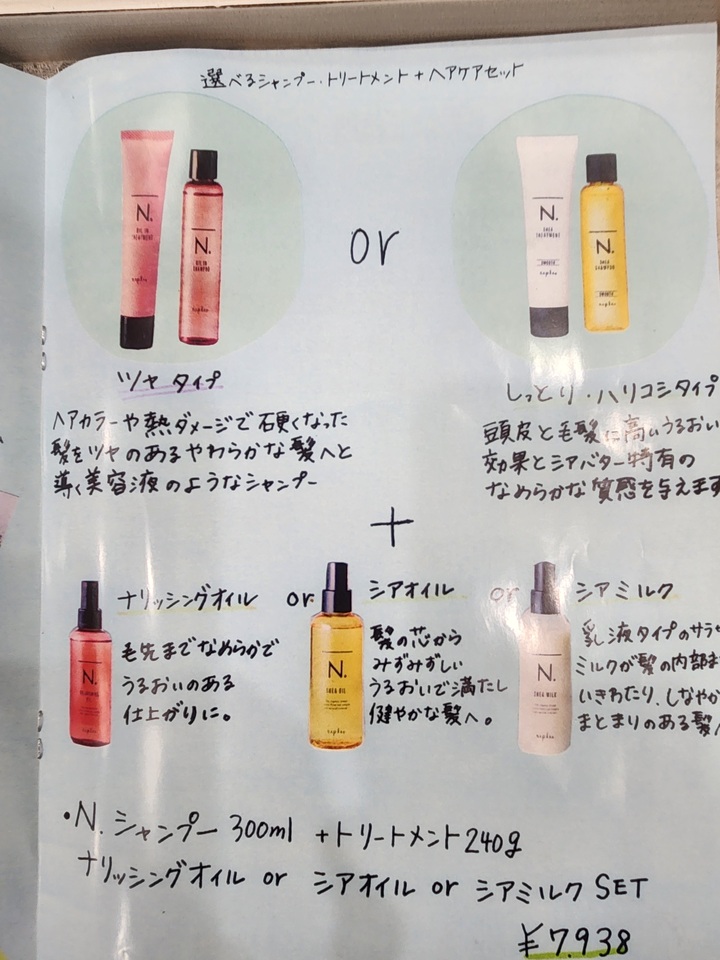 選べるシャンプー・トリートメント + ヘアケアセット
N.
OIL IN
TREATMENT
napla
N.
OIL IN
SHAMPOO
napla
or
N.
SHEA
TREATMENT
SMOOTH
napla
N.
SHEA
SHAMPOO
SMOOTH
napla
ツヤ タイプ
ヘアカラーや熱ダメージで硬くなった
髪をツヤのあるやわらかな髪へと
導く美容液のようなシャンプー
しっとり・ハリコシタイプ
頭皮と毛髪に高いうるおい
効果とシアバター特有の
なめらかな質感を与えます
+
ナリッシングオイル
毛先までなめらかで
うるおいのある
仕上がりに。
N.
napla
or
シアオイル
髪の芯から
みずみずしい
うるおいで満たし
健やかな髪へ。
N.
SHEA OIL
napla
or
シアミルク
乳液タイプのサラ
ミルクが髪の内部ま
いきわたり、しなやか
まとまりのある髪へ
N.
SHEA MILK
napla
・N. シャンプー 300ml +トリートメント240g
ナリッシングオイル or シアオイル or シアミルク SET
¥7.938